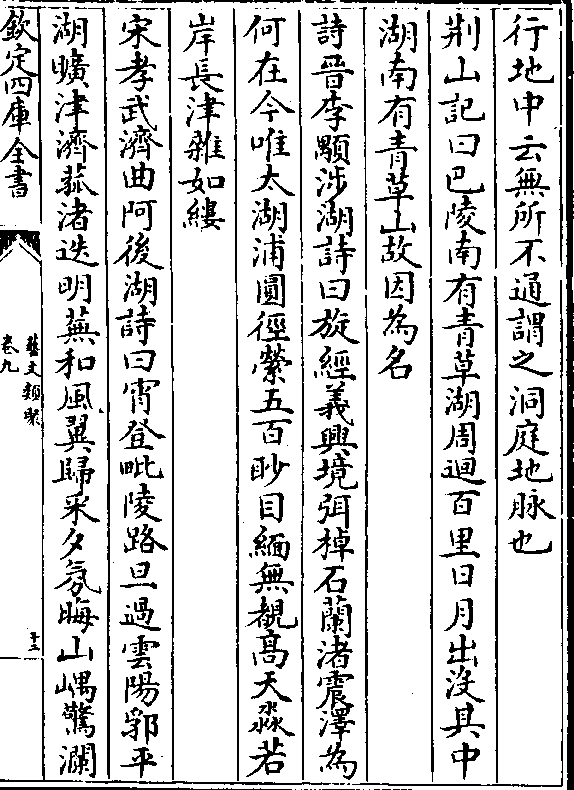 行地中云無所不通謂之洞庭地脉也
荆山記曰巴陵南有青草湖周迴百里日月出沒其中
湖南有青草山故因為名
詩晉李顒涉湖詩曰旋經義興境弭棹石蘭渚震澤為
何在今唯太湖浦圓徑縈五百眇目緬無覩高天淼若
岸長津雜如縷
宋孝武濟曲阿後湖詩曰宵登毗陵路旦過雲陽郛平
湖曠津濟菰渚迭明蕪和風翼歸采夕氛晦山嵎驚瀾
欽定四庫全書
藝文類聚
卷九
十三